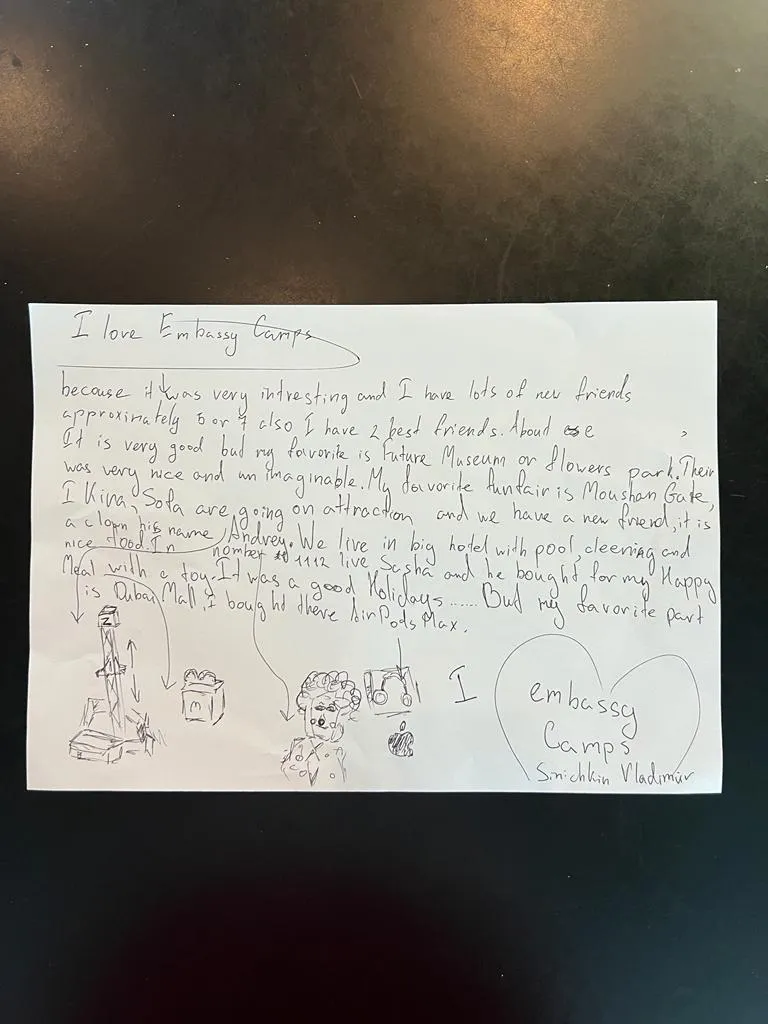 I love Embassy Camps
because it was very intresting and I have lots of new friends
approximately 5 or 7 also I have 2 best friends. About
It is very good but my favorite is Future Museum or flowers park. Their
was very nice and un imaginable. My favorite funfair is Moushan Gate,
I Kira, Sofa are going on attraction and we have a new friend, it is
a clown his name Andrey. We live in big hotel with pool, cleering and
nice food. In nomber 1112 live Sasha and he bought for my Happy
Meal with a toy. It was a good Holidays...... But my favorite part
is Dubai Mall, I bought there AirPods Max.
N
m
I
embassy
Camps
Sinichkin Vladimir